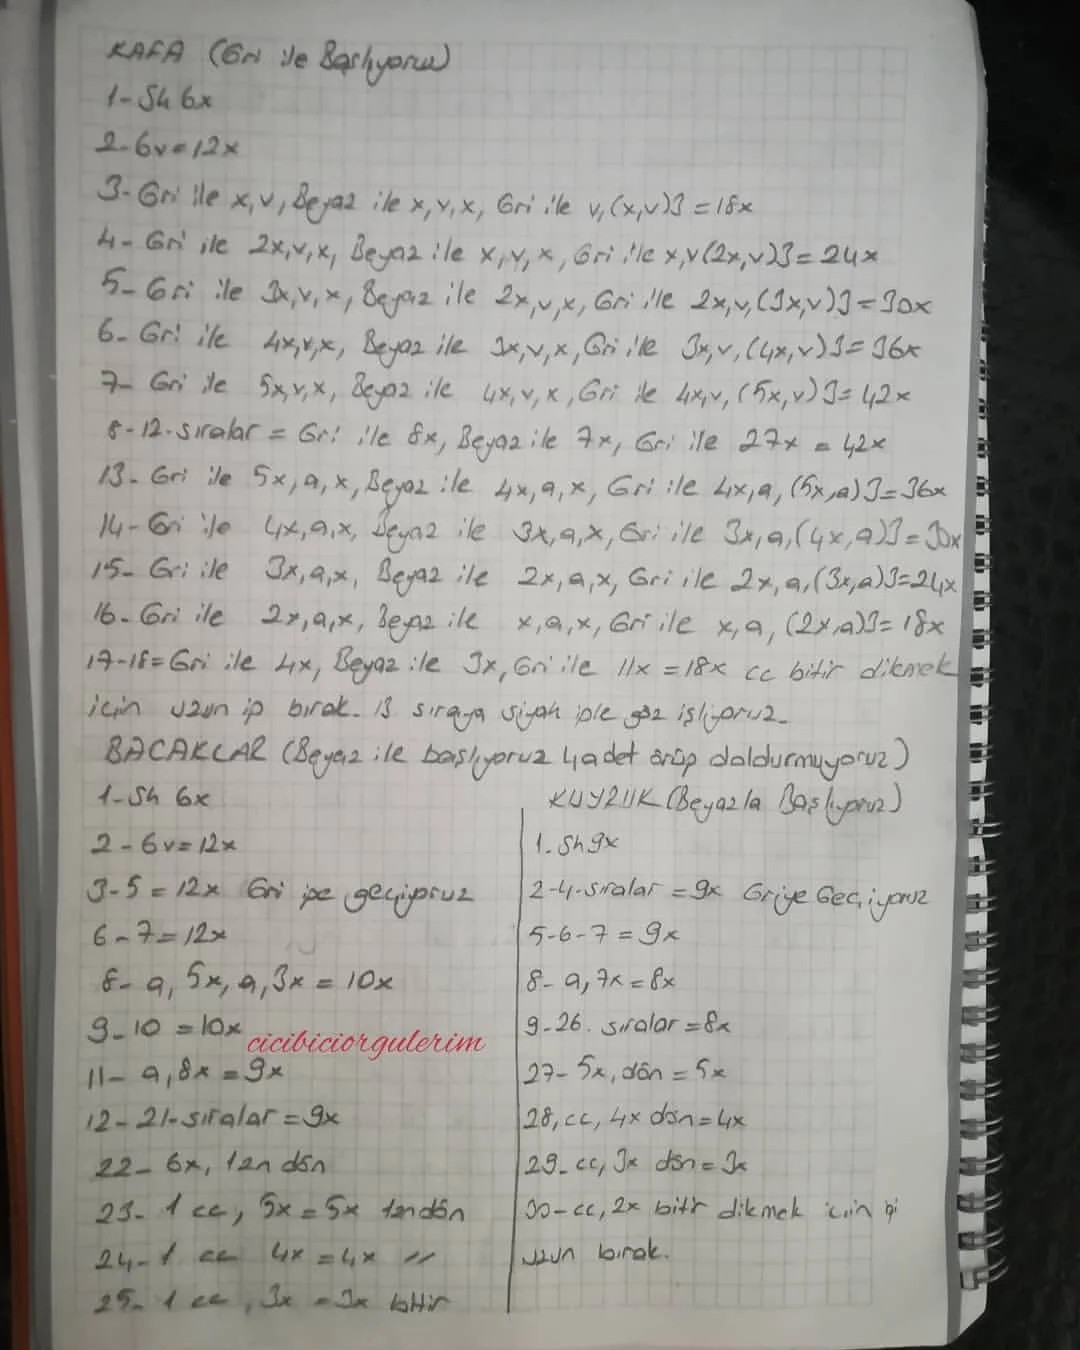 KAFA (Gri ile Başlıyoruz)
1- Sh 6x
2- 6v = 12x
3- Gri ile x,v, Beyaz ile x,v,x, Gri ile v,(x,v)3 = 18x
4- Gri ile 2x,v,x, Beyaz ile x,v,x, Gri ile x,v(2x,v)3 = 24x
5- Gri ile 3x,v,x, Beyaz ile 2x,v,x, Gri ile 2x,v,(3x,v)3 = 30x
6- Gri ile 4x,v,x, Beyaz ile 3x,v,x, Gri ile 3x,v,(4x,v)3 = 36x
7- Gri ile 5x,v,x, Beyaz ile 4x,v,x, Gri ile 4x,v,(5x,v)3 = 42x
8-12-sıralar = Gri ile 8x, Beyaz ile 7x, Gri ile 27x = 42x
13- Gri ile 5x,a,x, Beyaz ile 4x,a,x, Gri ile 4x,a,(5x,a)3 = 36x
14- Gri ile 4x,a,x, Beyaz ile 3x,a,x, Gri ile 3x,a,(4x,a)3 = 30x
15- Gri ile 3x,a,x, Beyaz ile 2x,a,x, Gri ile 2x,a,(3x,a)3 = 24x
16- Gri ile 2x,a,x, Beyaz ile x,a,x, Gri ile x,a,(2x,a)3 = 18x
17-18 = Gri ile 4x, Beyaz ile 3x, Gri ile 11x = 18x cc bitir dikmek
için uzun ip bırak. 13 sıraya siyah iple göz işliyoruz.
BACAKLAR (Beyaz ile başlıyoruz 4 adet örüp doldurmuyoruz)
1- Sh 6x
2- 6v = 12x
3-5 = 12x Gri ipe geçiyoruz
6-7 = 12x
8- a, 5x, a, 3x = 10x
9-10 = 10x
cicibiciorgulerim
11- a, 8x = 9x
12-21-sıralar = 9x
22- 6x, 1zn dön
23- 1 cc, 5x = 5x 1zn dön
24- 1 cc 4x = 4x "
25- 1 cc, 3x = 3x bitir
KUYRUK (Beyazla Başlıyoruz)
1. Sh 9x
2-4-sıralar = 9x Griye Geçiyoruz
5-6-7 = 9x
8- a, 7x = 8x
9-26. sıralar = 8x
27- 5x, dön = 5x
28, cc, 4x dön = 4x
29- cc, 3x dön = 3x
30- cc, 2x bitir dikmek için ipi
uzun bırak.